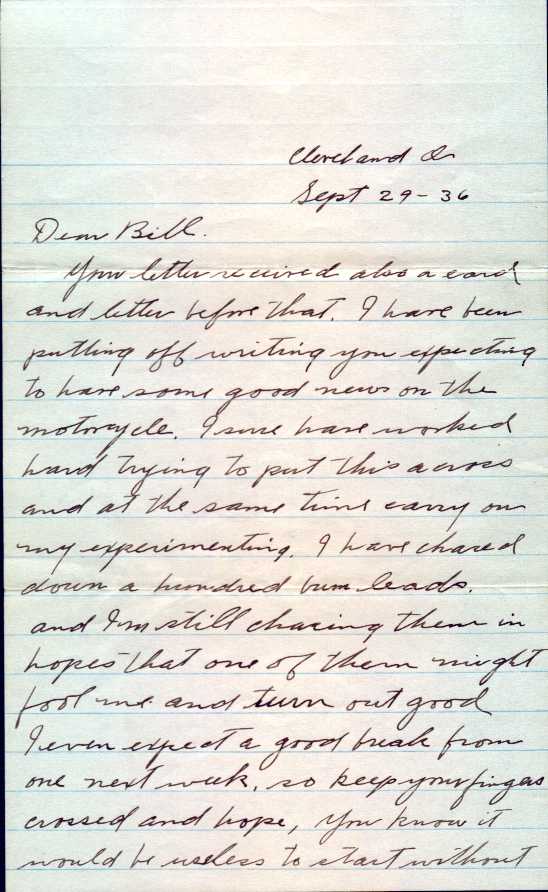 Cleveland O.
Sept 29-36
Dear Bill.
Your letter received also a card
and letter before that. I have been
putting off writing you expecting
to have some good news on the
motorcycle. I sure have worked
hard trying to put this across
and at the same time carry on
my experimenting. I have chased
down a hundred bum leads.
and I'm still chasing them in
hopes that one of them might
fool me and turn out good
I even expect a good break from
one next week, so keep your fingers
crossed and hope, You know it
would be useless to start without